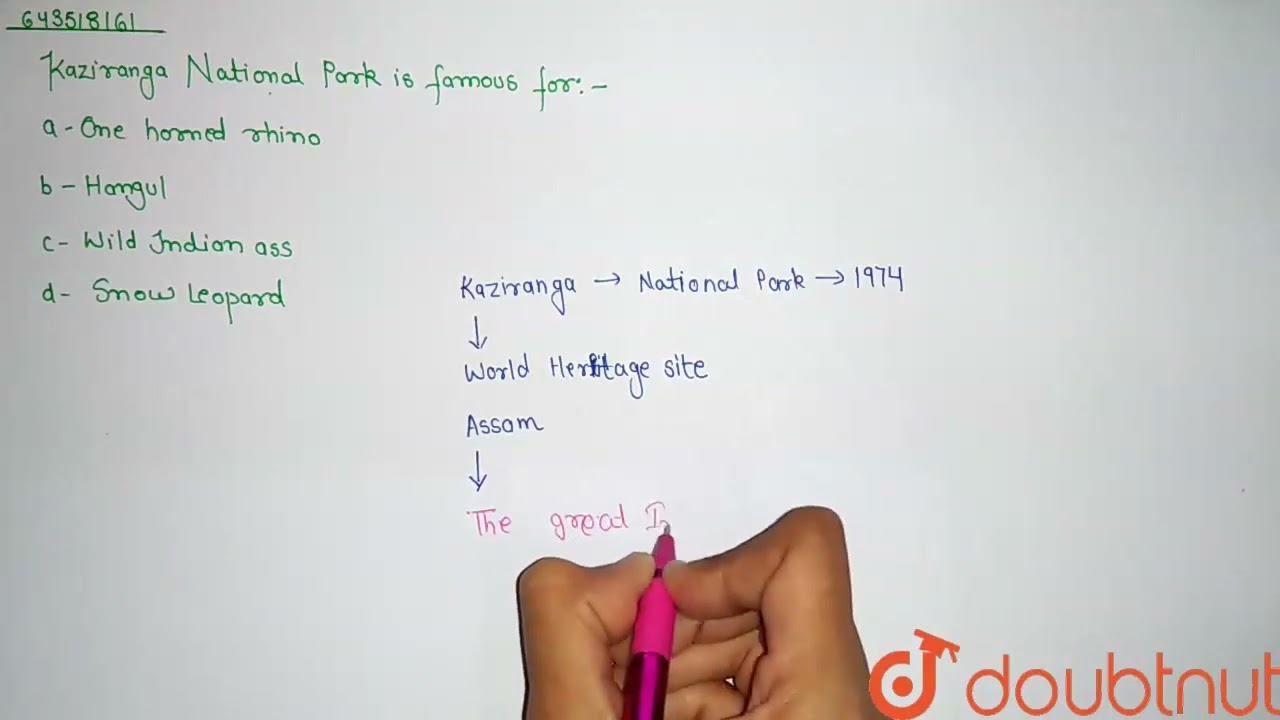 643518161
Kaziranga National Park is famous for:-
a - One horned rhino
b - Hangul
c - Wild Indian ass
d - Snow Leopard
Kaziranga → National Park → 1974
↓
World Heritage site
Assam
↓
The great I
doubtnut